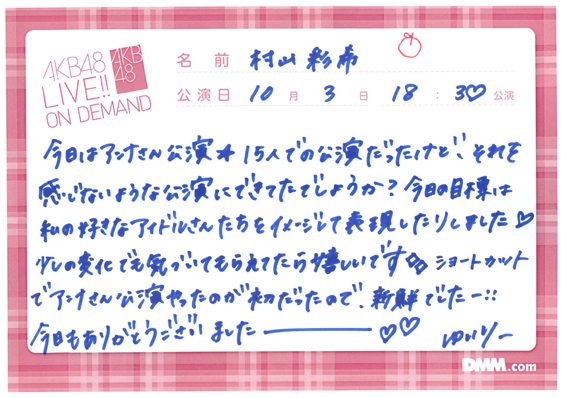 AKB48
LIVE!!
ON DEMAND
AKB
48
名前 村山彩希
公演日 10月 3日 18:30公演
今日はアンナさん公演★15人での公演だったけど、それを
感じないような公演にできてたでしょうか?今日の目標は
私の好きなアイドルさんたちをイメージして表現したりしました♡
少しの変化でも気づいてもらえてたら嬉しいです ショートカット
でアンナさん公演やったのが初だったので、新鮮でしたー!!
今日もありがとうございましたー♡♡ ゆいりー
DMM.com